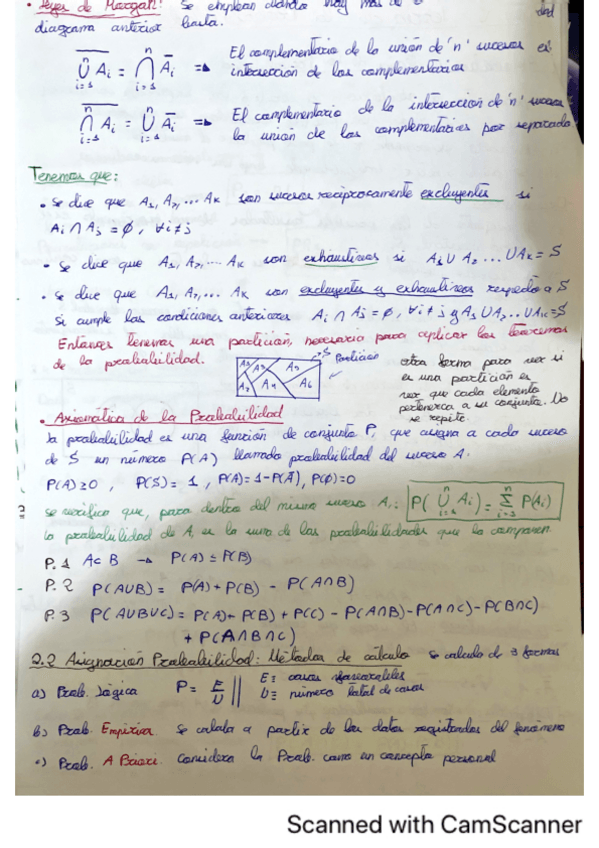 • Leyes de Morgan: Se emplean cuando hay más de
diagrama anterior basta.
$\overline{\bigcup_{i=1}^{n} A_i} = \bigcap_{i=1}^{n} \overline{A_i}$ ⇒ El complementario de la unión de 'n' sucesos es
intersección de los complementarios
$\overline{\bigcap_{i=1}^{n} A_i} = \bigcup_{i=1}^{n} \overline{A_i}$ ⇒ El complementario de la intersección de 'n' sucesos
la unión de los complementarios por separado
Tenemos que:
• Se dice que A₁, A₂, ... Aₖ son sucesos recíprocamente excluyentes si
Ai ∩ Aj = ∅, ∀i≠j
• Se dice que A₁, A₂, ... Aₖ son exhaustivos si A₁ U A₂ ... U Aₖ = S
• Se dice que A₁, A₂, ... Aₖ son excluyentes y exhaustivos respecto a S
si cumple las condiciones anteriores Ai ∩ Aj = ∅, ∀i≠j y A₁ U A₂ .. U Aₖ = S
Entonces tenemos una partición, necesaria para aplicar los teoremas
de la probabilidad.
→ S Partición
A₁ A₃ A₅
A₂ A₄ A₆
otra forma para ver si
es una partición es
ver que cada elemento
pertenezca a su conjunto. No
se repite.
• Axiomática de la Probabilidad
la probabilidad es una función de conjunto P, que asigna a cada suceso
de S un número P(A) llamado probabilidad del suceso A.
P(A) ≥ 0 , P(S) = 1 , P(A) = 1-P(Ā), P(∅)=0
se verifica que, para dentro del mismo suceso Ai: $P(\bigcup_{i=1}^{n} A_i) = \sum_{i=1}^{n} P(A_i)$
la probabilidad de A, es la suma de las probabilidades que la componen
P.1 A⊂B → P(A) ≤ P(B)
P.2 P(AUB) = P(A) + P(B) - P(A∩B)
P.3 P(AUBUC) = P(A) + P(B) + P(C) - P(A∩B) - P(A∩C) - P(B∩C)
+ P(A∩B∩C)
2.2 Asignación Probabilidad: Métodos de cálculo se calcula de 3 formas
a) Prob. Lógica P = E/U || E = casos favorables
U = número total de casos
b) Prob. Empírica Se calcula a partir de los datos registrados del fenómeno
c) Prob. A Priori. Considera la Prob. como un concepto personal
Scanned with CamScanner